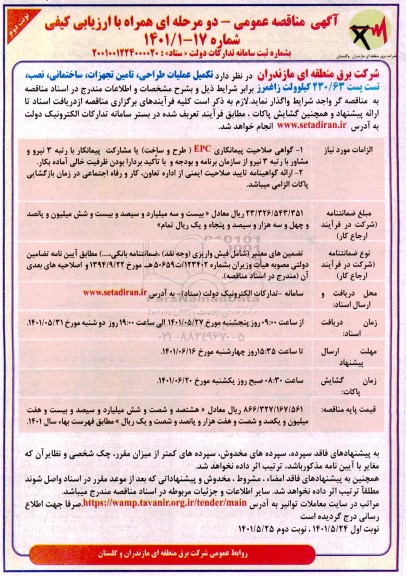 نوبت دوم
آگهی مناقصه عمومی – دو مرحله ای همراه با ارزیابی کیفی
شماره ۱۷-۱۴۰۱/۱
بشماره ثبت سامانه تدارکات دولت «ستاد»: ۲۰۰۱۰۰۱۲۲۴۰۰۰۰۲۰
شرکت برق منطقه ای مازندران - وگلستان
شرکت برق منطقه ای مازندران در نظر دارد تکمیل عملیات طراحی، تامین تجهزات، ساختمانی، نصب،
تست پست ۲۳۰/۶۳ کیلوولت زاغمرز برابر شرایط ذیل و بشرح مشخصات و اطلاعات مندرج در اسناد مناقصه
به مناقصه گر واجد شرایط واگذار نماید.لازم به ذکر است کلیه فرآیندهای برگزاری مناقصه ازدریافت اسناد تا
ارائه پیشنهاد و همچنین گشایش پاکات ، مطابق فرآیند تعریف شده در بستر سامانه تدارکات الکترونیک دولت
به آدرس www.setadiran.ir انجام خواهد شد.
الزامات مورد نیاز
۱- گواهی صلاحیت پیمانکاری EPC ( طرح و ساخت) یا مشارکت پیمانکار با رتبه ۳ نیرو و
مشاور با رتبه ۳ نیرو از سازمان برنامه و بودجه و با تأکید بردارا بودن ظرفیت خالی آماده بکار.
۲- ارائه گواهینامه تایید صلاحیت ایمنی از اداره تعاون، کار و رفاه اجتماعی در زمان بازگشایی
پاکات الزامی میباشد.
مبلغ ضمانتنامه (شرکت در فرآیند ارجاع کار)
۲۳/۳۲۶/۵۴۳/۳۵۱ ریال معادل « بیست و سه میلیارد و سیصد و بیست و شش میلیون و پانصد
و چهل و سه هزار و سیصد و پنجاه و یک ریال تمام»
نوع ضمانتنامه (شرکت در فرآیند ارجاع کار)
تضمین های معتبر (شامل فیش واریزی (وجه نقد) ،ضمانتنامه بانکی،....) مطابق آیین نامه تضامین
دولتی مصوبه هیأت وزیران بشماره ۱۲۳۴۰۲/ت۵۰۶۵۹هـ مورخ ۱۳۹۴/۹/۲۲ و اصلاحیه های بعدی
آن (مندرج در اسناد مناقصه).
محل دریافت و ارسال اسناد:
سامانه -تدارکات الکترونیک دولت (ستاد)- به آدرس www.setadiran.ir
زمان دریافت اسناد:
از ساعت ۰۹:۰۰ روز پنجشنبه مورخ ۱۴۰۱/۰۵/۲۷ الی ساعت ۱۹:۰۰ روز دو شنبه مورخ ۱۴۰۱/۰۵/۳۱
مهلت ارسال پیشنهاد
تا ساعت ۱۵:۳۵ روز چهارشنبه مورخ ۱۴۰۱/۰۶/۱۶
زمان گشایش پاکات:
ساعت ۰۸:۳۰ صبح روز یکشنبه مورخ ۱۴۰۱/۰۶/۲۰
قیمت پایه مناقصه:
۸۶۶/۳۲۷/۱۶۷/۵۶۱ ریال معادل « هشتصد و شصت و شش میلیارد و سیصد و بیست و هفت
میلیون و یکصد و شصت و هفت هزار و پانصد و شصت و یک ریال» مطابق فهرست بهاء سال ۱۴۰۱.
به پیشنهادهای فاقد سپرده، سپرده های مخدوش، سپرده های کمتر از میزان مقرر، چک شخصی و نظایر آن که
مغایر با آیین نامه مذکورباشد، ترتیب اثر داده نخواهد شد.
همچنین به پیشنهادهای فاقد امضاء ، مشروط ، مخدوش و پیشنهاداتی که بعد از موعد مقرر در اسناد واصل شوند
مطلقاً ترتیب اثر داده نخواهد شد. سایر اطلاعات و جزئیات مربوطه در اسناد مناقصه مندرج میباشد.
مراتب در سایت معاملات توانیر به آدرس https://wamp.tavanir.org.ir/tender/main.صرفا جهت اطلاع
رسانی درج گردیده است
نوبت اول ۱۴۰۱/۵/۲۴ ، نوبت دوم ۱۴۰۱/۵/۲۵
روابط عمومی شرکت برق منطقه ای مازندران و گلستان